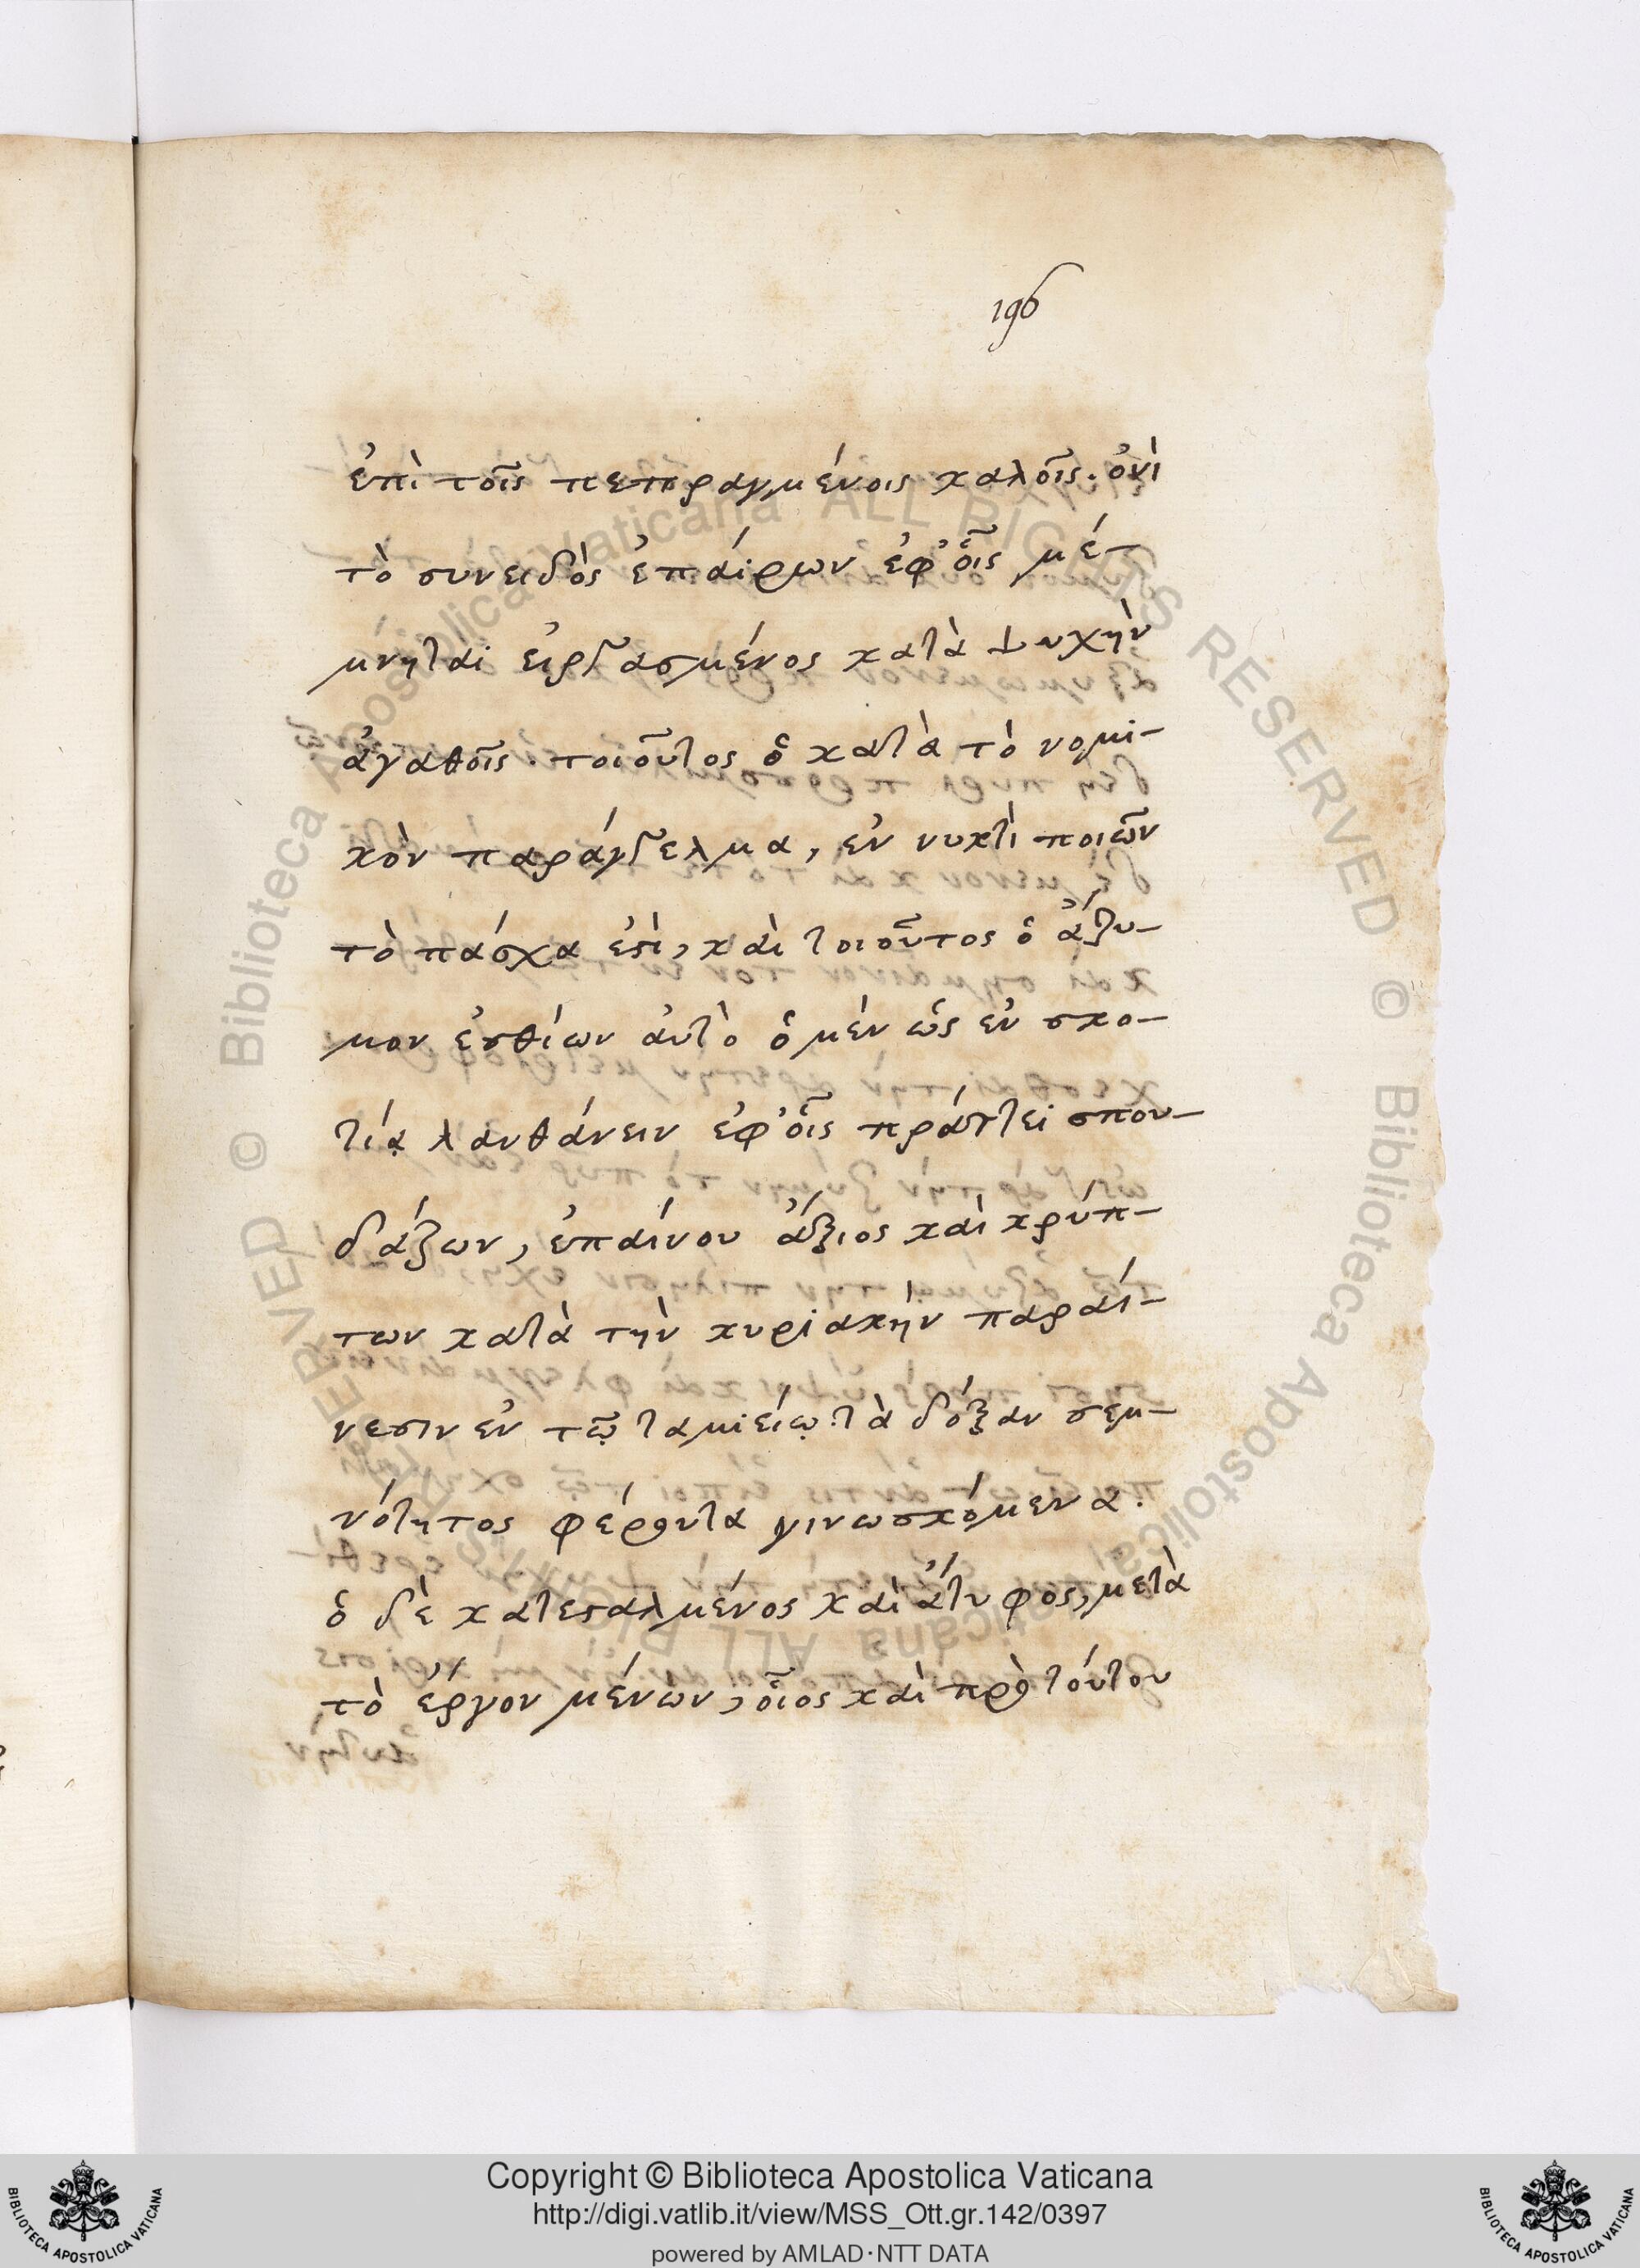 196
ἐπὶ τοῖς πεπραγμένοις καλοῖς. ὀνὶ
τὸ συνειδὸς ἐπαίρων ἐφ' οἷς μέ-
μνηται εἰργασμένος κατὰ ψυχὴν
ἀγαθοῖς. τοιοῦτος ὁ κατὰ τὸ νομι-
κὸν παράγγελμα, ἐν νυκτὶ ποιῶν
τὸ πάσχα ἐστὶ, καὶ τοιοῦτος ὁ ἄζυ-
μον ἐσθίων αὐτὸ ὁ μὲν ὡς ἐν σκο-
τίᾳ λανθάνειν ἐφ' οἷς πράττει σπου-
δάζων, ἐπαίνου ἄξιος καὶ κρύπ-
των κατὰ τὴν κυριακὴν παραί-
νεσιν ἐν τῷ ταμιείῳ. τὰ δόξαν σεμ-
νότητος φέροντα γινωσκόμενα.
ὁ δὲ κατεσταλμένος καὶ ἄτυφος, μετὰ
τὸ ἔργον μένων, οἷος καὶ πρὸ τούτου
Copyright © Biblioteca Apostolica Vaticana
http://digi.vatlib.it/view/MSS_Ott.gr.142/0397
powered by AMLAD·NTT DATA
BIBLIOTECA APOSTOLICA VATICANA
BIBLIOTECA APOSTOLICA VATICANA
© Biblioteca Apostolica Vaticana ALL RIGHTS RESERVED © Biblioteca Apostolica Vaticana ALL RIGHTS RESERVED